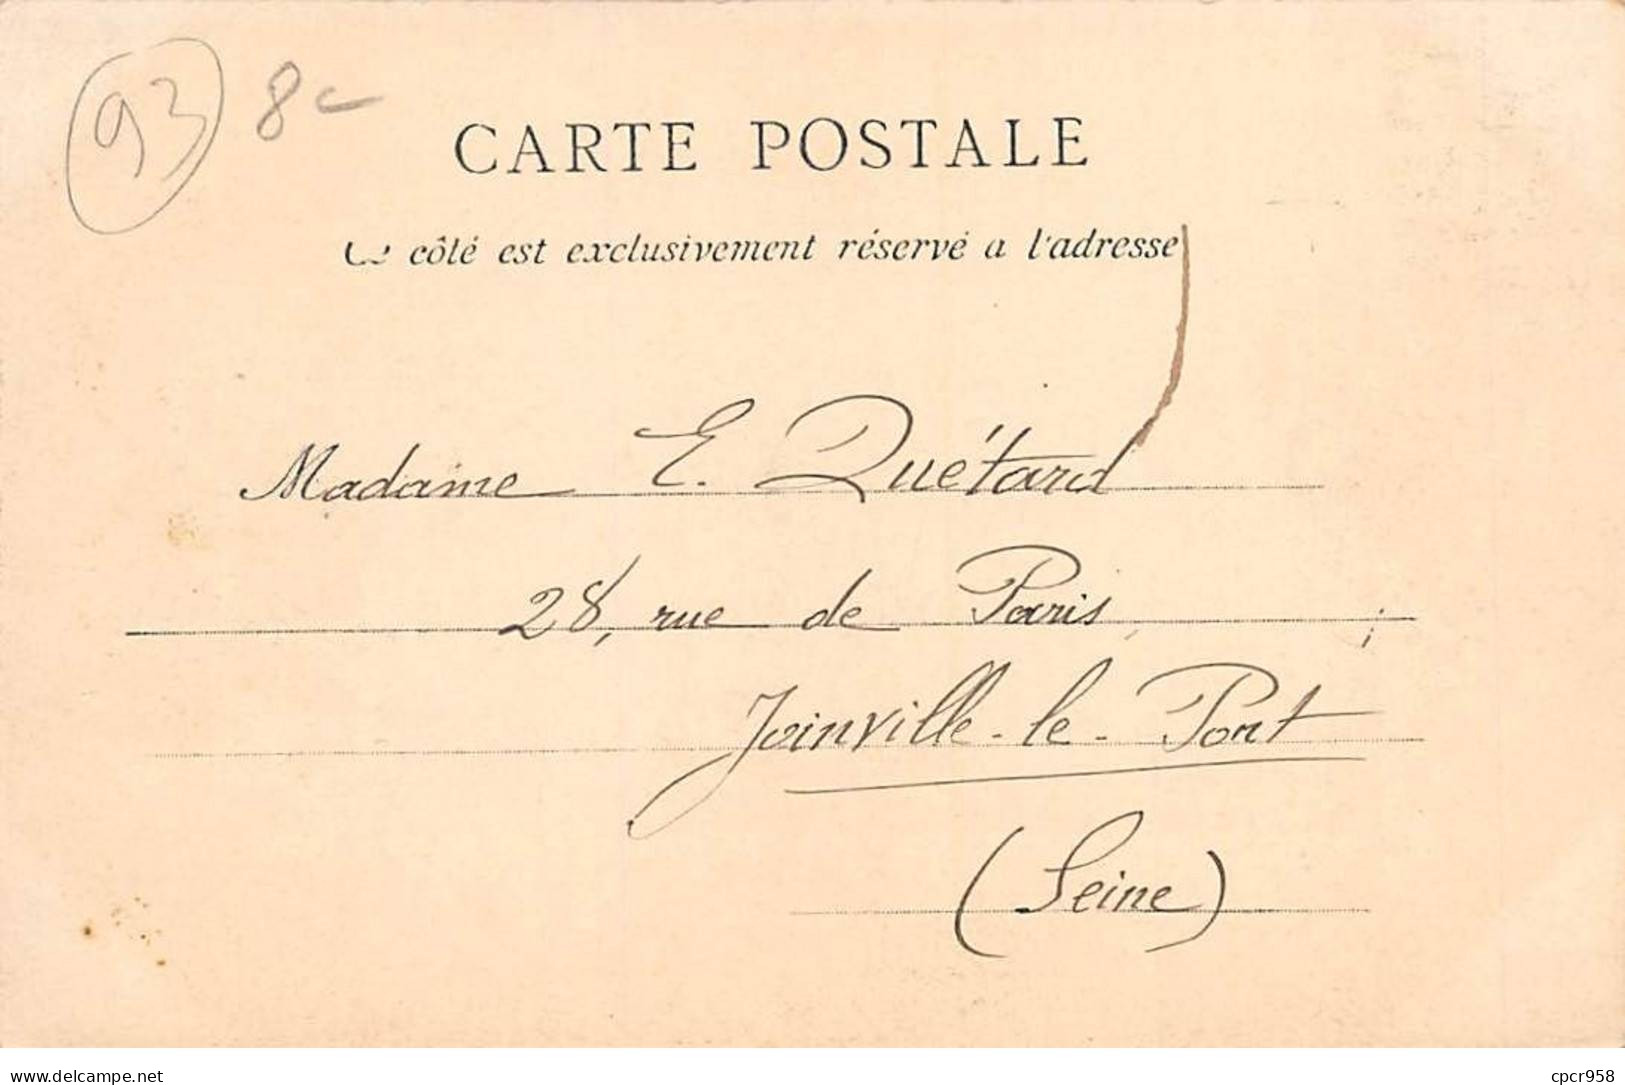 93 8
CARTE POSTALE
Ce côté est exclusivement réservé a l'adresse
Madame E. Quétard
28, rue de Paris
Joinville-le-Pont
(Seine)
www.delcampe.net
cpcr958